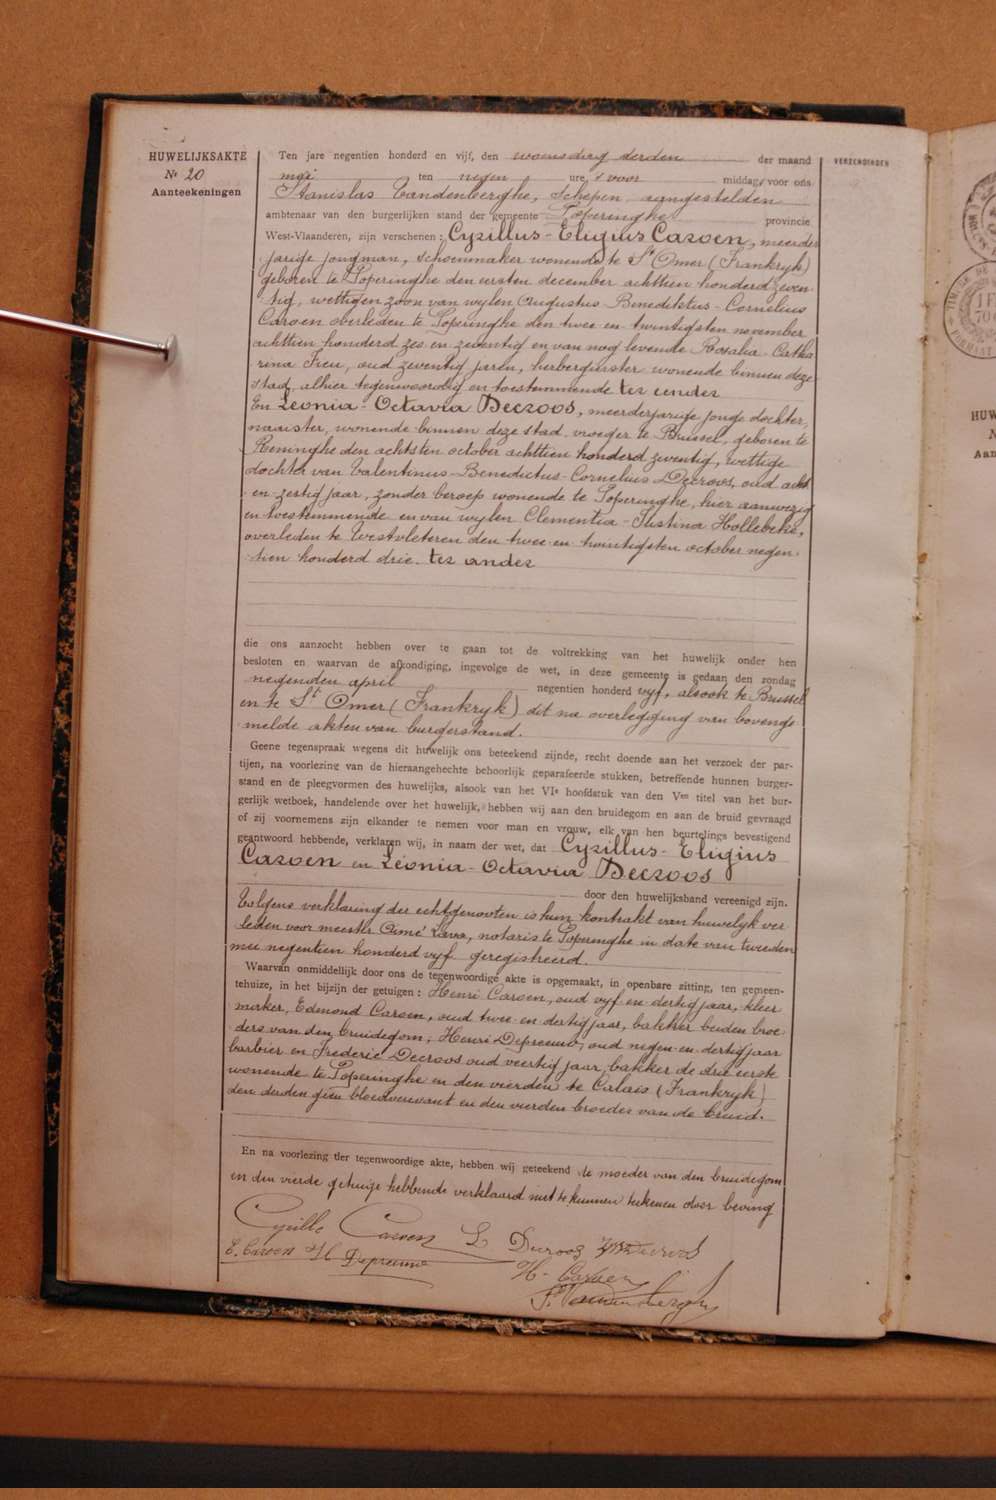 HUWELIJKSAKTE
Nr 20
Aanteekeningen
Ten jare negentien honderd en vijf, den woensdag derden der maand
mei ten negen ure, 's voor middag, voor ons
Stanislas Vandenberghe, Schepen aangestelden
ambtenaar van den burgerlijken stand der gemeente Poperinghe provincie
West-Vlaanderen, zijn verschenen : Cyrillus-Eligius Caroen, meerder
jarige jongman, schoenmaker wonende te St Omer (Frankryk)
geboren te Poperinghe den eersten december achttien honderd zeven
tig, wettigen zoon van wylen Augustus-Benediktus-Cornelius
Caroen overleden te Poperinghe den twee en twintigsten november
achttien honderd zes en zeventig en van nog levende Rosalia-Catha
rina Fieu, oud zeventig jaren, herbergierster wonende binnen deze
stad, alhier tegenwoordig en toestemmende ter eender
En Leonia-Octavia Decroos, meerderjarige jonge dochter,
naaister, wonende binnen deze stad, vroeger te Brussel, geboren te
Reninghe den achtsten october achttien honderd zeventig, wettige
dochter van Valentinus-Benedictus-Cornelius Decroos, oud acht
en zestig jaar, zonder beroep wonende te Poperinghe, hier aanwezig
en toestemmende en van wylen Clementia-Justina Hollebeke,
overleden te Westvleteren den twee en twintigsten october negen-
tien honderd drie. ter ander
die ons aanzocht hebben over te gaan tot de voltrekking van het huwelijk onder hen
besloten en waarvan de afkondiging, ingevolge de wet, in deze gemeente is gedaan den zondag
negensten april negentien honderd vyf, alsook te Brussel
en te St Omer (Frankryk) dit na overlegging van bovenge
melde akten van burgerstand.
Geene tegenspraak wegens dit huwelijk ons beteekend zijnde, recht doende aan het verzoek der par-
tijen, na voorlezing van de hieraangehechte behoorlijk geparafeerde stukken, betreffende hunnen burger-
stand en de pleegvormen des huwelijks, alsook van het VIe hoofdstuk van den Ven titel van het bur-
gerlijk wetboek, handelende over het huwelijk, hebben wij aan den bruidegom en aan de bruid gevraagd
of zij voornemens zijn elkander te nemen voor man en vrouw, elk van hen beurtelings bevestigend
geantwoord hebbende, verklaren wij, in naam der wet, dat Cyrillus-Eligius
Caroen en Leonia-Octavia Decroos
door den huwelijksband vereenigd zijn.
Volgens verklaring der echtgenooten is hun kontrakt van huwelyk ver
leden voor meester Aimé Lava, notaris te Poperinghe in date van tweeden
mei negentien honderd vyf geregistreerd.
Waarvan onmiddellijk door ons de tegenwoordige akte is opgemaakt, in openbare zitting, ten gemeen-
tehuize, in het bijzijn der getuigen : Henri Caroen, oud vyf en dertig jaar, kleer
maker, Edmond Caroen, oud twee en dertig jaar, bakker beiden broe
ders van den bruidegom, Henri Depreeuw, oud negen en dertig jaar
barbier en Frederic Decroos oud veertig jaar, bakker de drie eerste
wonende te Poperinghe en den vierden te Calais (Frankryk)
den derden geen bloedverwant en den vierden broeder van de bruid.
En na voorlezing der tegenwoordige akte, hebben wij geteekend de moeder van den bruidegom
en den vierde getuige hebbende verklaard niet te kunnen teekenen door beving
Cyrille Caroen L Decroos
E. Caroen H Depreeuw H. Caroen
S. Vandenberghe
VERZENDINGEN